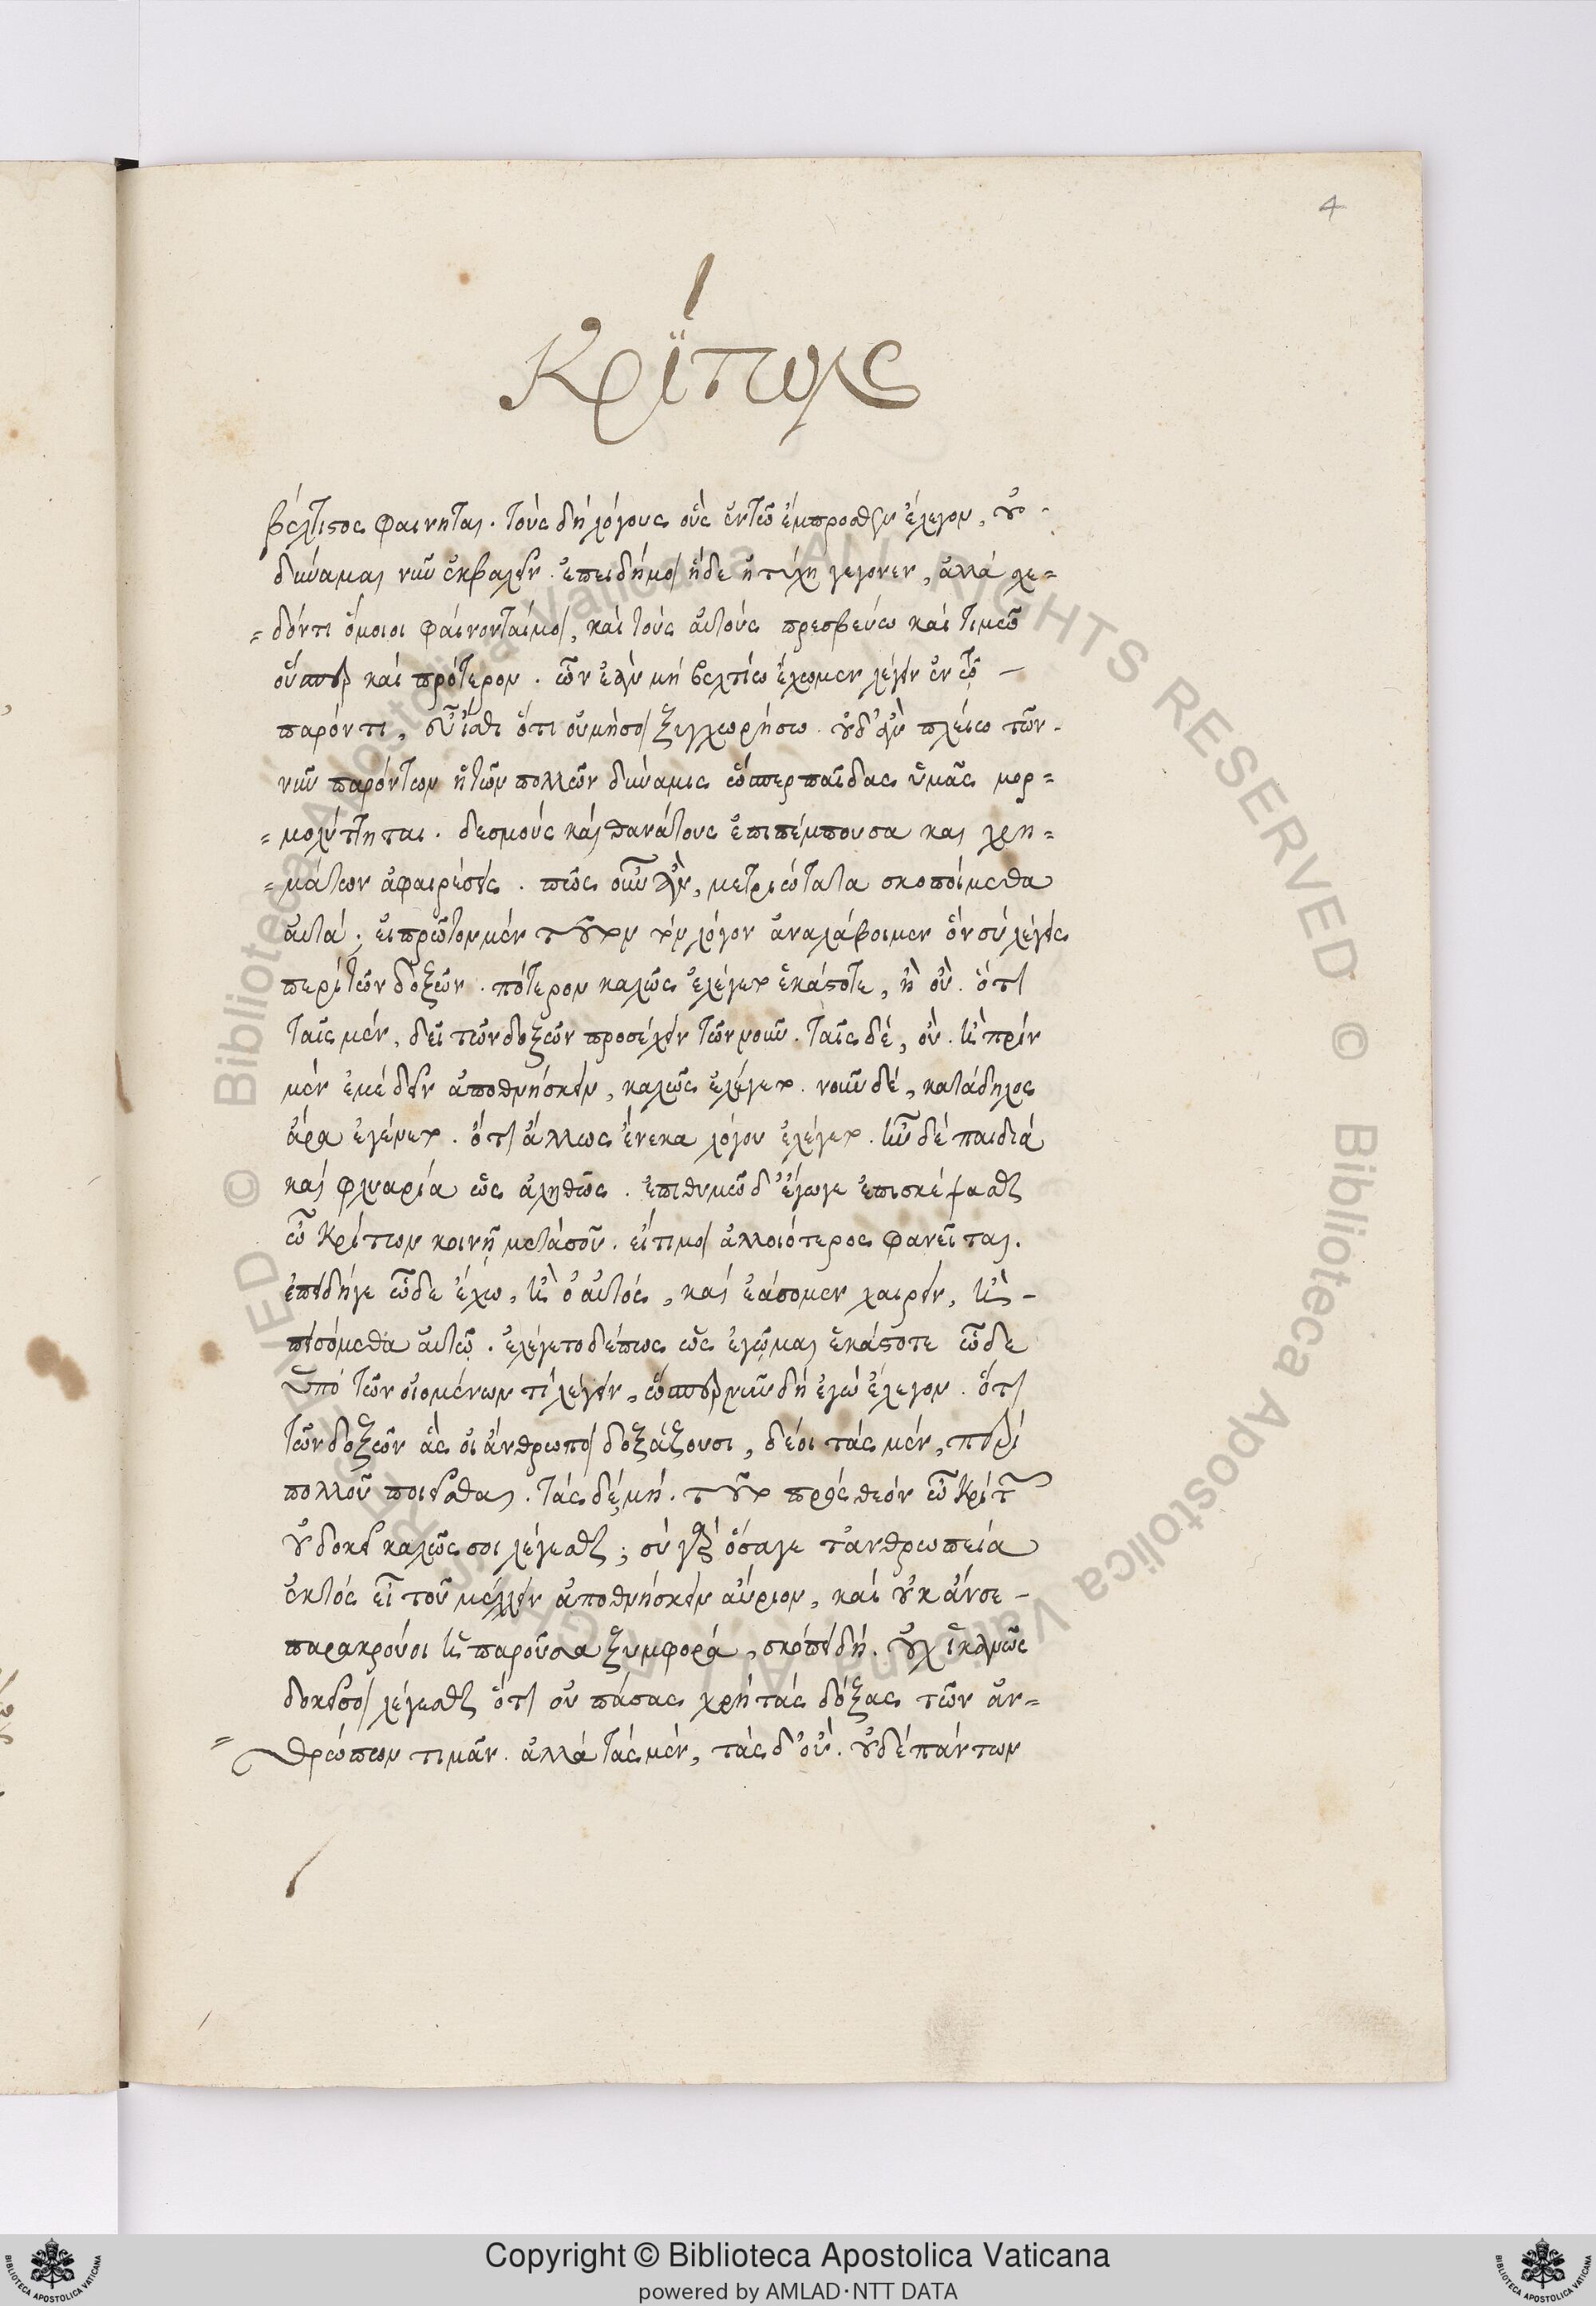 4
Κρίτων
βέλτιστος φαίνηται. τοὺς δὴ λόγους οὓς ἐν τῶ ἔμπροσθεν ἔλεγον, οὐ
δύναμαι νῦν ἐκβαλεῖν. ἐπειδή μοι ἥδε ἡ τύχη γέγονεν, ἀλλὰ σχε=
=δόν τι ὅμοιοι φαίνονταί μοι, καὶ τοὺς αὐτοὺς πρεσβεύω καὶ τιμῶ
οὕσπερ καὶ πρότερον. ὧν ἐὰν μὴ βελτίω ἔχωμεν λέγειν ἐν τῷ –
παρόντι, εὖ ἴσθι ὅτι οὐ μή σοι ξυγχωρήσω. οὐδ' ἂν πλείω τῶν
νῦν παρόντων ἡ τῶν πολλῶν δύναμις ὥσπερ παῖδας ἡμᾶς μορ=
=μολύττηται. δεσμοὺς καὶ θανάτους ἐπιπέμπουσα και χρη=
=μάτων ἀφαιρέσεις. πῶς οὖν ἂν, μετριώτατα σκοποίμεθα
αὐτά; εἰ πρῶτον μὲν τοῦτον τὸν λόγον ἀναλάβοιμεν ὃν σὺ λέγεις
περὶ τῶν δοξῶν. πότερον καλῶς ἐλέγετο ἑκάστοτε, ἢ οὔ. ὅτι
ταῖς μὲν, δεῖ τῶν δοξῶν προσέχειν τὸν νοῦν. ταῖς δὲ, οὔ. ἢ πρὶν
μὲν ἐμὲ δεῖν ἀποθνήσκειν, καλῶς ἐλέγετο. νῦν δὲ, κατάδηλος
ἄρα ἐγένετο. ὅτι ἄλλως ἕνεκα λόγου ἐλέγετο. ἦν δὲ παιδιὰ
καὶ φλυαρία ὡς ἀληθῶς. ἐπιθυμῶ δ' ἔγωγε ἐπισκέψασθαι
ὦ Κρίτων κοινῇ μετὰ σοῦ. εἴ τί μοι ἀλλοιότερος φανεῖται.
ἐπειδήγε ὧδε ἔχω, ἢ ὁ αὐτός, καὶ ἐάσομεν χαίρειν, ἢ –
πεισόμεθα αὐτῷ. ἐλέγετο δέ πως ὡς ἐγῷμαι ἑκάστοτε ὧδε
ὑπὸ τῶν οἰομένων τὶ λέγειν, ὥσπερ νῦν δὴ ἐγὼ ἔλεγον. ὅτι
τῶν δοξῶν ἃς οἱ ἄνθρωποι δοξάζουσι, δέοι τὰς μὲν, περὶ
πολλοῦ ποιεῖσθαι. τὰς δὲ, μή. τοῦτο πρὸς θεὸν ὦ Κρίτων
οὐ δοκεῖ καλῶς σοι λέγεσθαι; σὺ γὰρ ὅσαγε τἀνθρωπεία
ἐκτὸς εἶ τοῦ μέλλειν ἀποθνήσκειν αὔριον, καὶ οὐκ ἄν σε –
παρακρούοι ἡ παροῦσα ξυμφορά, σκόπει δή. οὐχ ἱκανῶς
δοκεῖ σοι λέγεσθαι ὅτι οὐ πάσας χρὴ τὰς δόξας τῶν ἀν=
=θρώπων τιμᾶν. ἀλλὰ τὰς μὲν, τὰς δ' οὔ. οὐδὲ πάντων
Copyright © Biblioteca Apostolica Vaticana
powered by AMLAD·NTT DATA